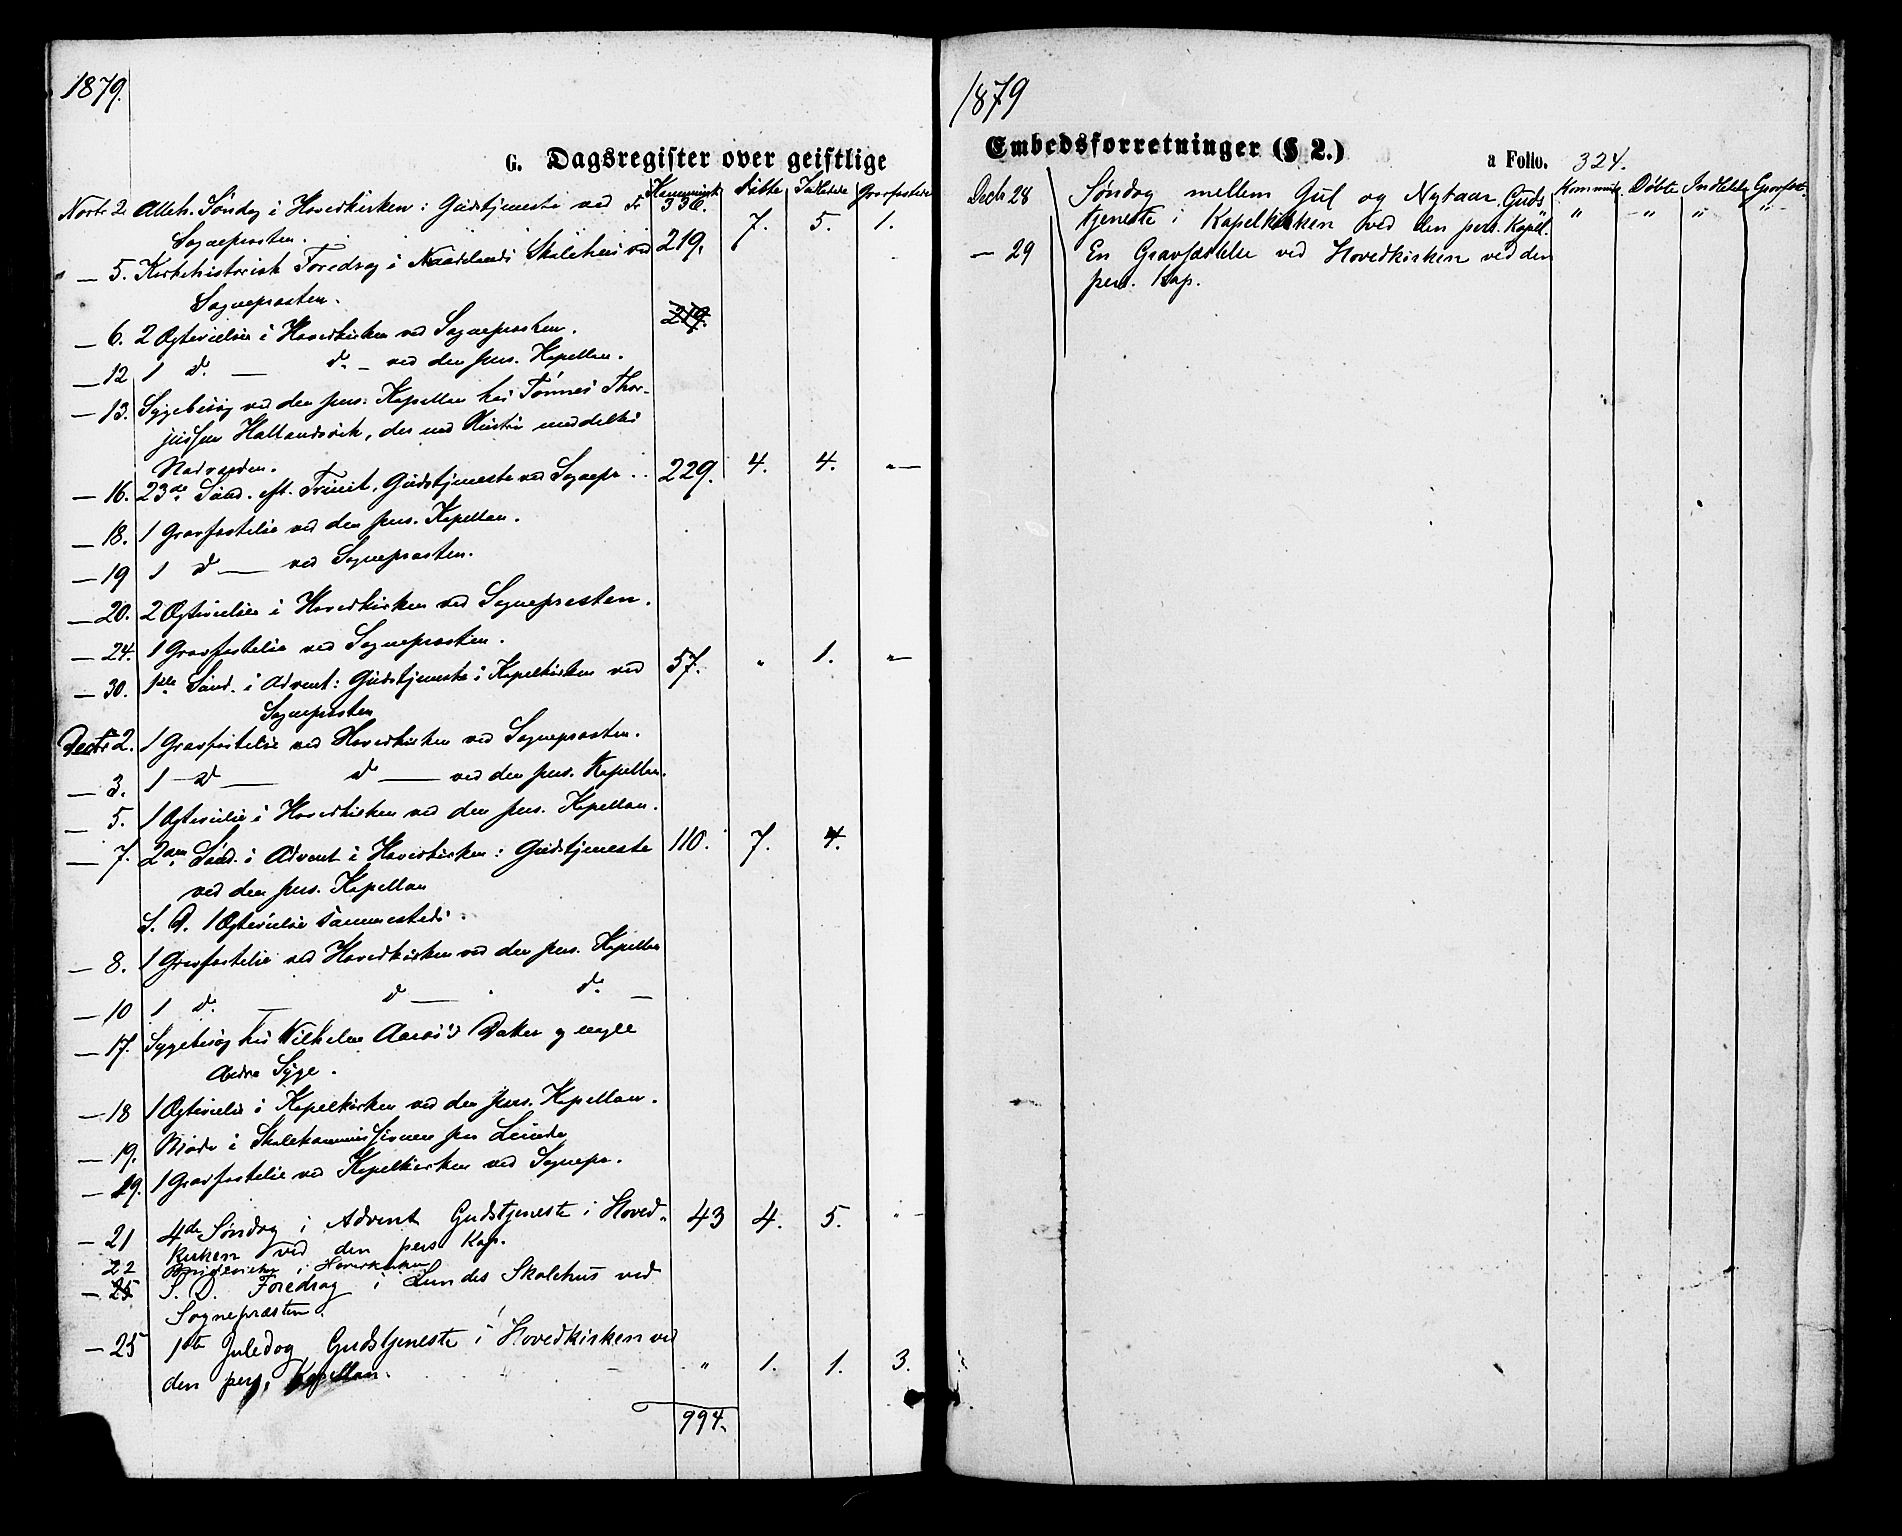 1879.
G. Dagsregister over geistlige
Kommunik. Døbte Indledde Gravfæstede
Novbr 2. Alleh. Søndag i Hovedkirken: Gudstjeneste ved Tr. 336.
Sognepræsten. 219. 7. 5. 1.
— 5. Kirkehistorisk Foredrag i Skolehus ved
Sognepræsten.
— 6. 2 Ægtevielser i Hovedkirken ved Sognepræsten. 219.
— 12 1 d. — d. — ved den pers. Kapellan.
— 13. Sygebesøg ved den pers. Kapellan hos Tønnes Thor-
jussen Hallandsvik, der med Hustru meddeltes
Nadverden.
— 16. 23de Sønd. eft. Trinit. Gudstjeneste ved Sognepr. 229. 4. 4. „—
— 18. 1 Gravfæstelse ved den pers. Kapellan.
— 19 1 d — ved Sognepræsten.
— 20. 2 Ægtevielser i Hovedkirken ved Sognepræsten.
— 24. 1 Gravfæstelse ved Sognepræsten.
— 30. 1ste Sønd. i Advent: Gudstjeneste i Kapelkirken ved 57. „ 1. „—
Sognepræsten
Decbr 2. 1 Gravfæstelse ved Hovedkirken ved Sognepræsten.
— 3. 1 — d — d — ved den pers. Kapellan.
— 5. 1 Ægtevielse i Hovedkirken ved den pers. Kapellan.
— 7. 2den Sønd. i Advent i Hovedkirken: Gudstjeneste 110. 7. 4.
ved den pers. Kapellan
S. D. 1 Ægtevielse sammesteds.
— 8. 1 Gravfæstelse ved Hovedkirken ved den pers. Kapellan
— 10 1 d. — d — d. —
— 17. Sygebesøg hos Vilhelm Datter og nogle
Andre Syge.
— 18 1 Ægtevielse i Kapelkirken ved den pers. Kapellan.
— 19. Møde i Skolekommissionen paa Lunde
— 19. 1 Gravfæstelse ved Kapelkirken ved Sognepr.
— 21 4de Søndag i Advent Gudstjeneste i Hoved- 43 4. 5. „ -
kirken ved den pers. Kap.
22 i Hovedkirken
— 25 S. D. Foredrag i Lundes Skolehus ved
Sognepræsten.
— 25 1ste Juledag Gudstjeneste i Hovedkirken ved
den pers. Kapellan. „ 1. 1. 3.
994.
1879
Embedsforretninger (§ 2.)
a Folio. 324.
Kommunik. Døbte Indledde Gravfæst.
Decbr 28 Søndag mellem Jul og Nytaar. Guds
tjeneste i Kapelkirken ved den pers. Kapel. „ -„ „ „-
— 29 En Gravfæstelse ved Hovedkirken ved den
pers. Kap.